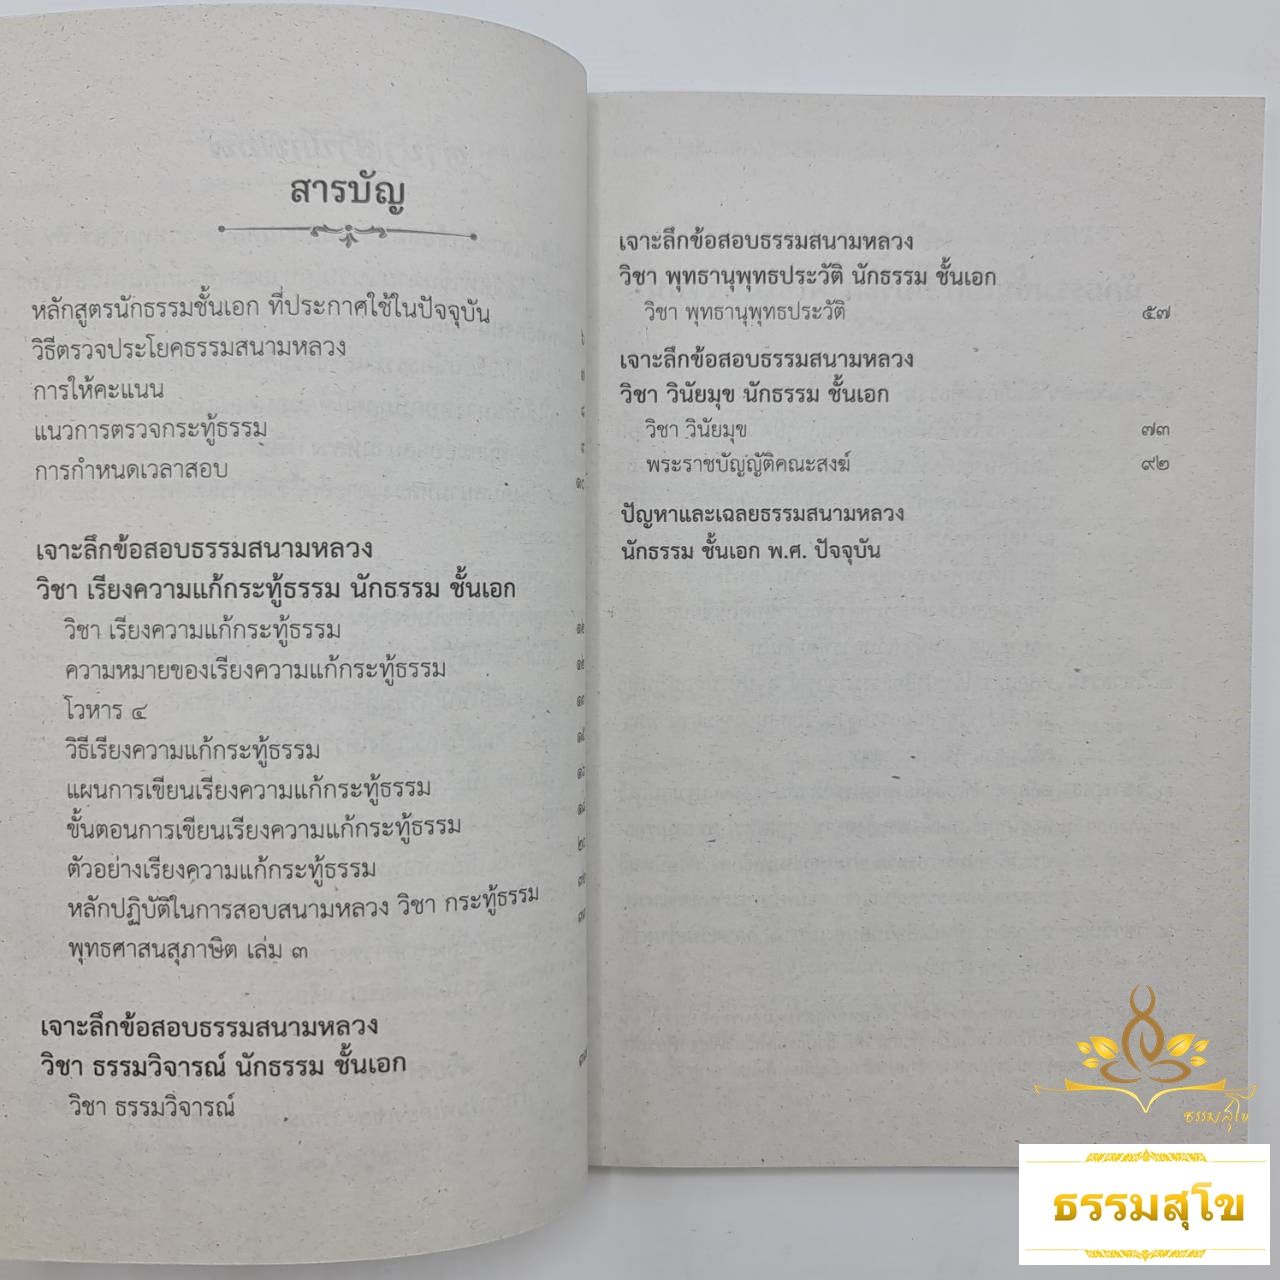 สารบัญ
หลักสูตรนักธรรมชั้นเอก ที่ประกาศใช้ในปัจจุบัน
วิธีตรวจประโยคธรรมสนามหลวง
การให้คะแนน
แนวการตรวจกระทู้ธรรม
การกำหนดเวลาสอบ
เจาะลึกข้อสอบธรรมสนามหลวง
วิชา เรียงความแก้กระทู้ธรรม นักธรรม ชั้นเอก
วิชา เรียงความแก้กระทู้ธรรม
ความหมายของเรียงความแก้กระทู้ธรรม
โวหาร ๔
วิธีเรียงความแก้กระทู้ธรรม
แผนการเขียนเรียงความแก้กระทู้ธรรม
ขั้นตอนการเขียนเรียงความแก้กระทู้ธรรม
ตัวอย่างเรียงความแก้กระทู้ธรรม
หลักปฏิบัติในการสอบสนามหลวง วิชา กระทู้ธรรม
พุทธศาสนสุภาษิต เล่ม ๓
เจาะลึกข้อสอบธรรมสนามหลวง
วิชา ธรรมวิจารณ์ นักธรรม ชั้นเอก
วิชา ธรรมวิจารณ์
เจาะลึกข้อสอบธรรมสนามหลวง
วิชา พุทธานุพุทธประวัติ นักธรรม ชั้นเอก
วิชา พุทธานุพุทธประวัติ ๕๗
เจาะลึกข้อสอบธรรมสนามหลวง
วิชา วินัยมุข นักธรรม ชั้นเอก
วิชา วินัยมุข ๗๓
พระราชบัญญัติคณะสงฆ์ ๙๒
ปัญหาและเฉลยธรรมสนามหลวง
นักธรรม ชั้นเอก พ.ศ. ปัจจุบัน
ธรรมสุโข
ธรรมสุโข